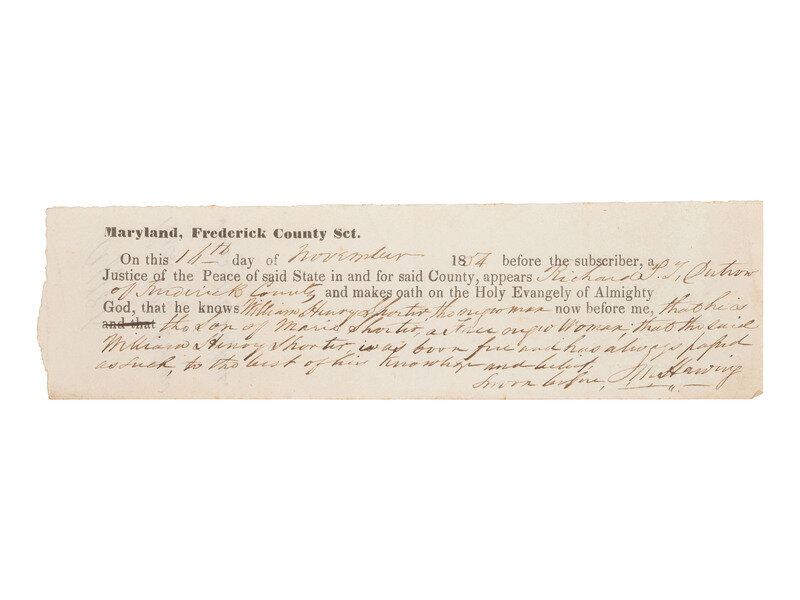 Maryland, Frederick County Sct.
On this 11th day of November 1854 before the subscriber, a
Justice of the Peace of said State in and for said County, appears Richard P. T. Dutrow
of Frederick County and makes oath on the Holy Evangely of Almighty
God, that he knows William Henry Shorter, the negro man now before me, that he is
and that the Son of Maria Shorter, a Free negro Woman, that the said
William Henry Shorter is as born free and has always passed
as such, to the best of his knowledge and belief
Sworn before,